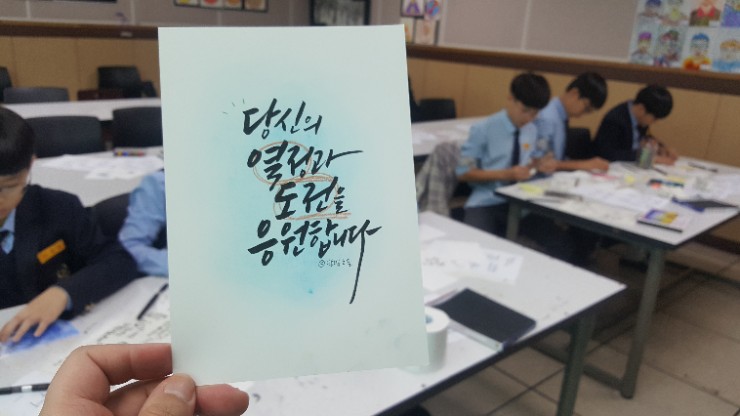 당신의
열정과
도전을
응원합니다